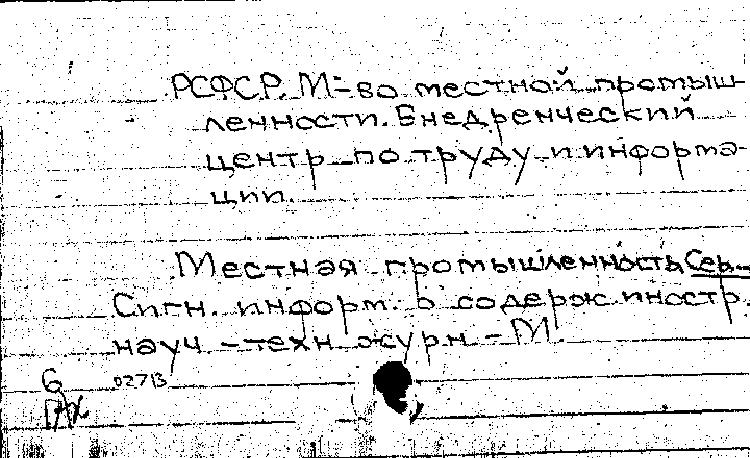 РСФСР. М-во местной промыш-
ленности. Внедренческий
центр по труду и информа-
ции.
Местная промышленность. Сер.
Сигн. информ. о содерж. иностр.
науч.-техн. журн. - М.
6
02713